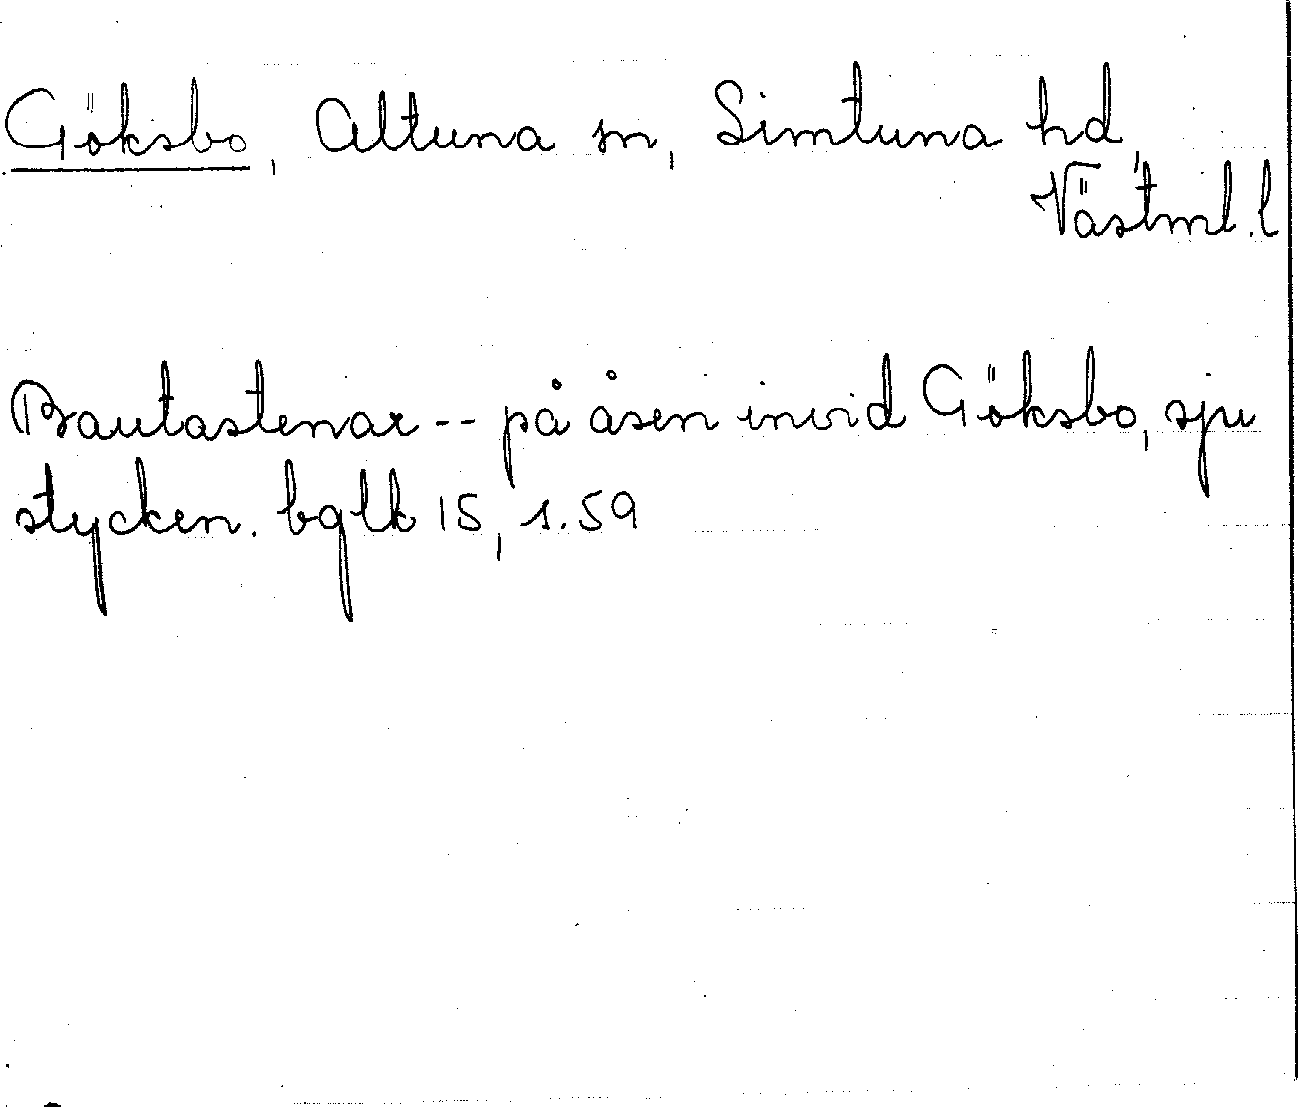 Göksbo, Altuna sn, Simtuna hd,
Västml. l
Bautastenar -- på åsen invid Göksbo, sju
stycken. bglk 15, s. 59